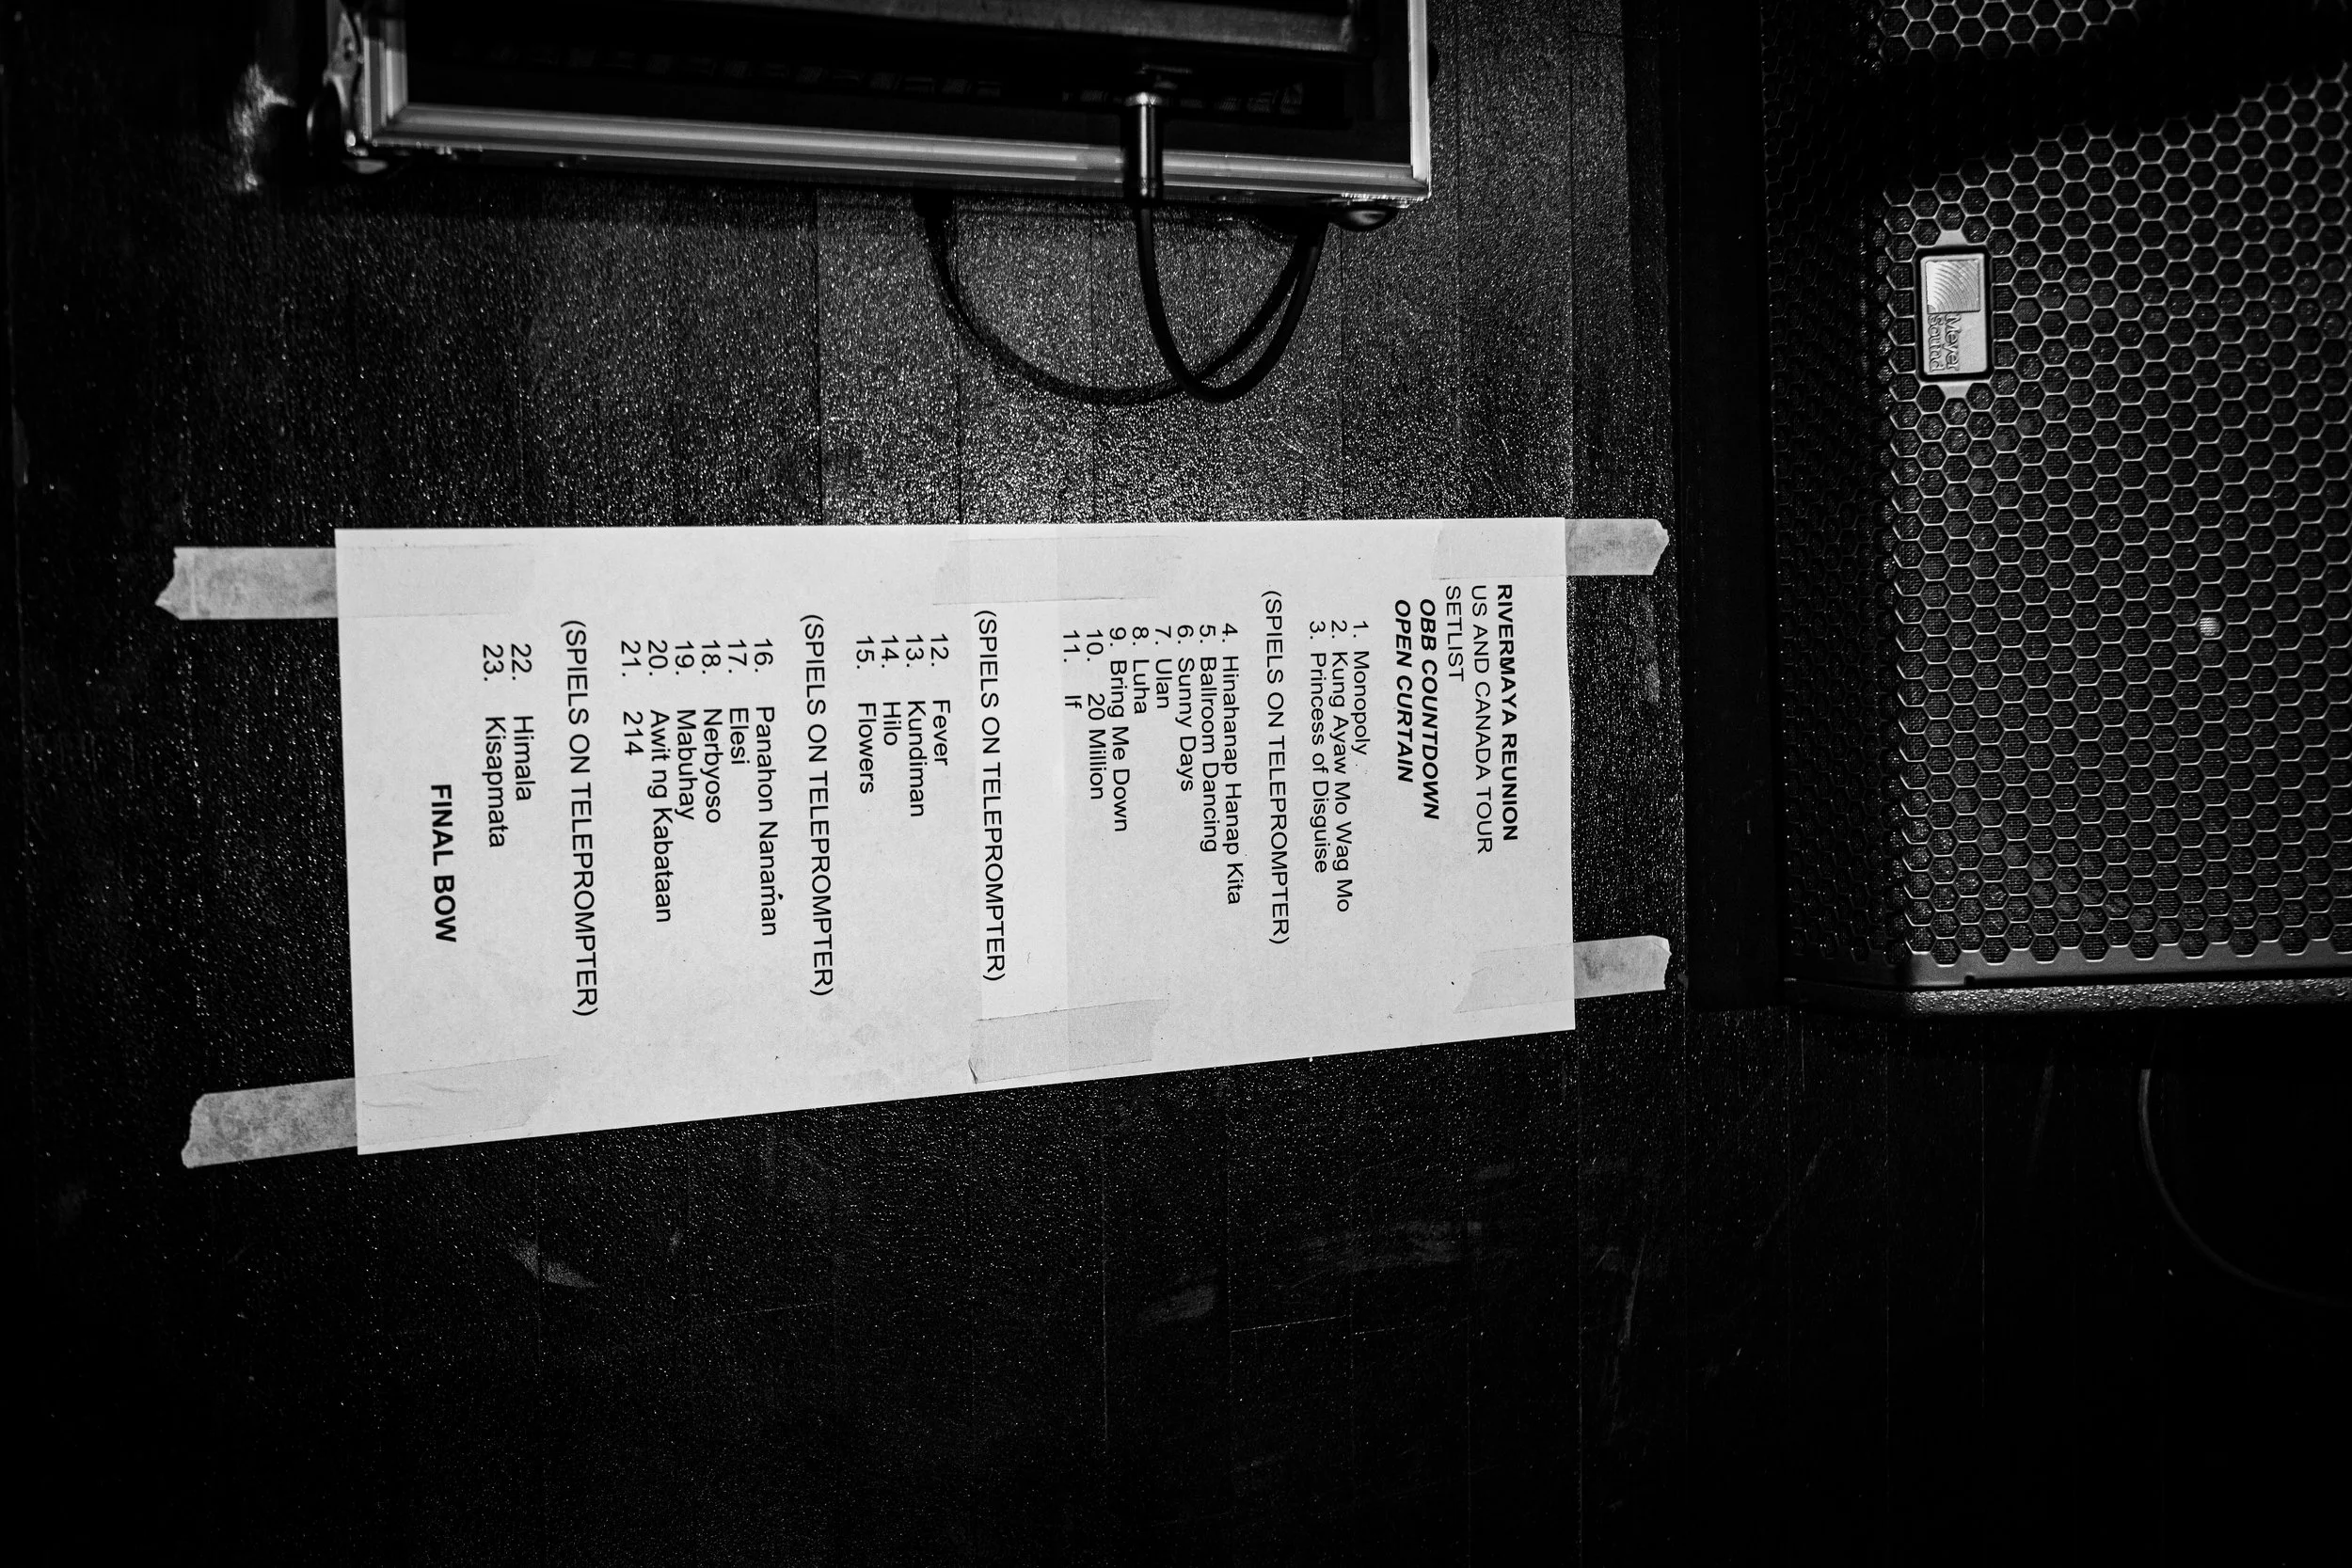 RIVERMAYA REUNION
US AND CANADA TOUR
SETLIST
OBB COUNTDOWN
OPEN CURTAIN
1. Monopoly
2. Kung Ayaw Mo Wag Mo
3. Princess of Disguise
(SPIELS ON TELEPROMPTER)
4. Hinahanap Hanap Kita
5. Ballroom Dancing
6. Sunny Days
7. Ulan
8. Luha
9. Bring Me Down
10. 20 Million
11. If
(SPIELS ON TELEPROMPTER)
12. Fever
13. Kundiman
14. Hilo
15. Flowers
(SPIELS ON TELEPROMPTER)
16. Panahon Nanaman
17. Elesi
18. Nerbyoso
19. Mabuhay
20. Awit ng Kabataan
21. 214
(SPIELS ON TELEPROMPTER)
22. Himala
23. Kisapmata
FINAL BOW
Meyer
Sound